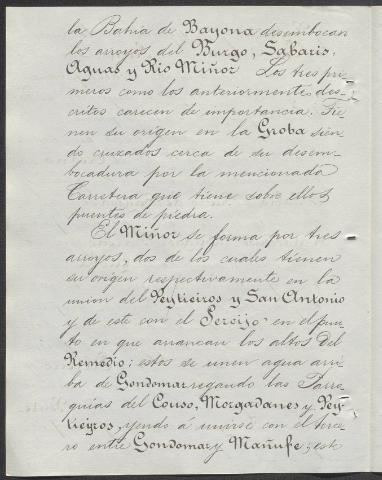 la Bahia de Bayona desembocan
los arroyos del Burgo, Sabaris,
Aguas y Rio Miñor Los tres pri-
meros como los anteriormente des-
critos carecen de importancia. Tie-
nen su origen en la Groba sien-
do cruzados cerca de su desem-
bocadura por la mencionada
Carretera que tiene sobre ellos
puentes de piedra.
El Miñor se forma por tres
arroyos, dos de los cuales tienen
su origen respectivamente en la
union del Peytieiros y San Antonio
y de este con el en el pun-
to en que arrancan los altos del
Remedio; estos se unen agua arri-
ba de Gondomar regando las Parro-
quias del Couso, Morgadanes y Pey-
tieyros, yendo a unirse con el terce-
ro entre Gondomar y Mañufe; este